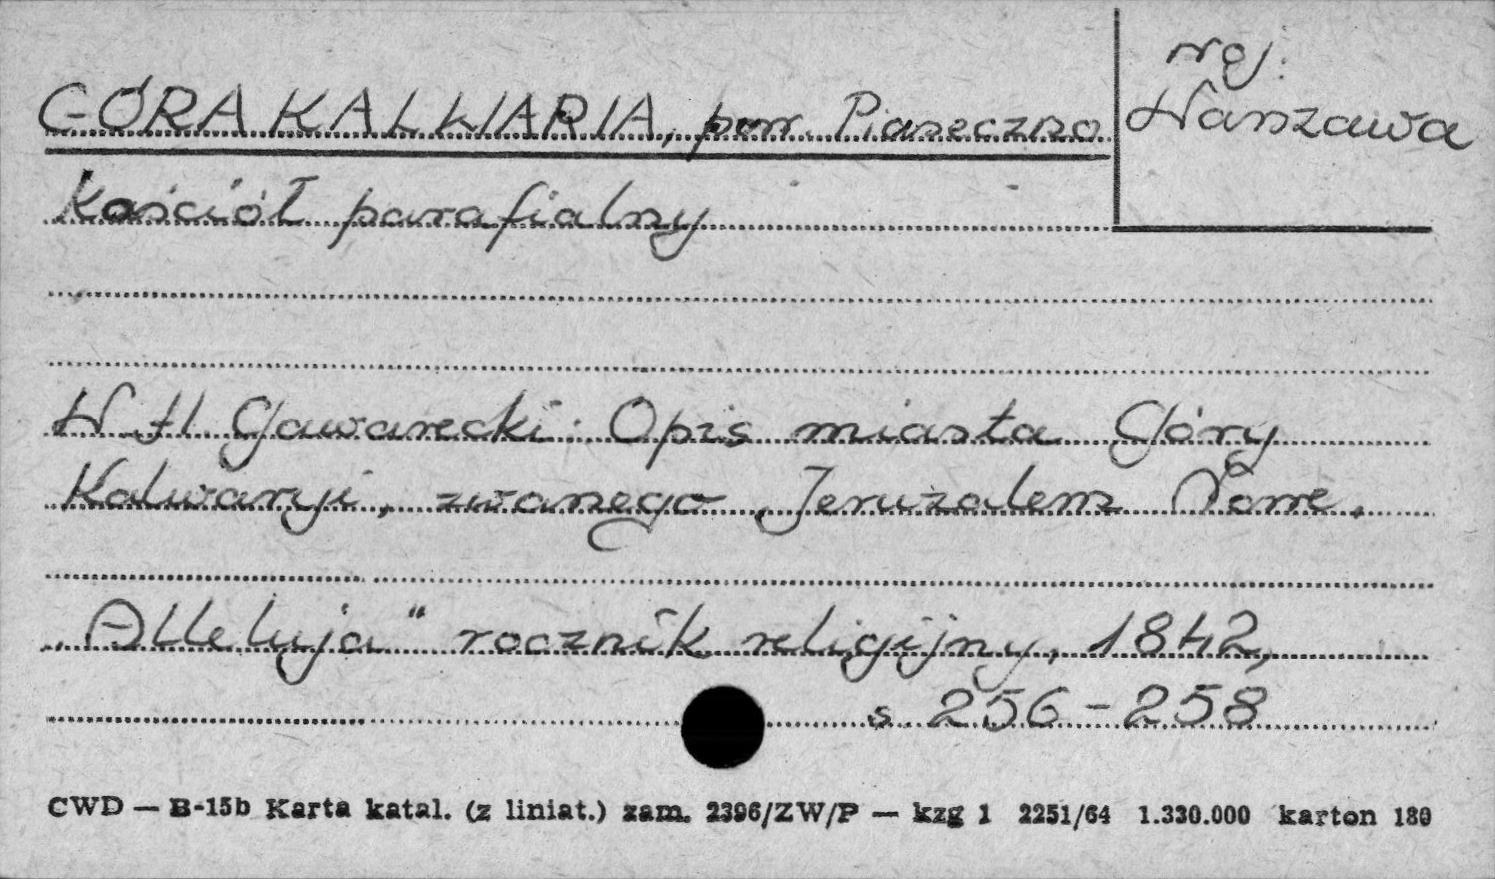 GÓRA KALWARIA, pow. Piaseczno
woj.
Warszawa
Kościół parafialny
W. H. Gawarecki: Opis miasta Góry
Kalwaryi, zwanego Jeruzalem Nowe.
„Alleluja“ rocznik religijny, 1842,
s. 256-258
CWD — B-15b Karta katal. (z liniat.) zam. 2396/ZW/P — kzg 1 2251/64 1.330.000 karton 180